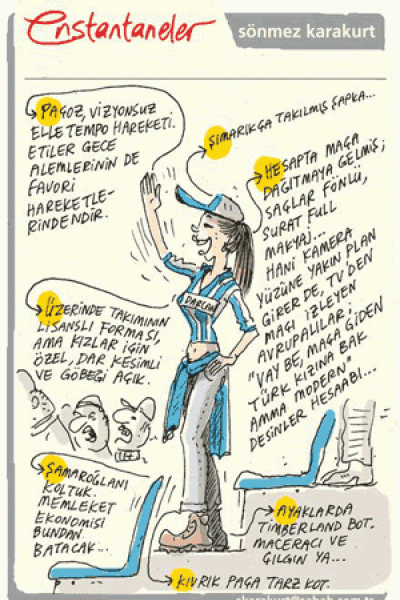 Enstantaneler
sönmez karakurt
PAÇOZ, VİZYONSUZ
ELLE TEMPO HAREKETİ.
ETİLER GECE
ALEMLERİNİN DE
FAVORİ
HAREKETLE-
RİNDENDİR.
ŞIMARIKÇA TAKILMIŞ ŞAPKA...
HESAPTA MAÇA
DAĞITMAYA GELMİŞ;
SAÇLAR FÖNLÜ,
SURAT FULL
MAKYAJ...
HANİ KAMERA
YÜZÜNE YAKIN PLAN
GİRER DE, TV'DEN
MAÇI İZLEYEN
AVRUPALILAR;
"VAY BE, MAÇA GİDEN
TÜRK KIZINA BAK
AMMA MODERN"
DESİNLER HESAABI...
ÜZERİNDE TAKIMININ
LİSANSLI FORMASI,
AMA KIZLAR İÇİN
ÖZEL, DAR KESİMLİ
VE GÖBEĞİ AÇIK.
ŞAMAROĞLANI
KOLTUK.
MEMLEKET
EKONOMİSİ
BUNDAN
BATACAK...
AYAKLARDA
TIMBERLAND BOT.
MACERACI VE
ÇILGIN YA...
KIVRIK PAÇA TARZ KOT.
skarakurt@sabah.com.tr